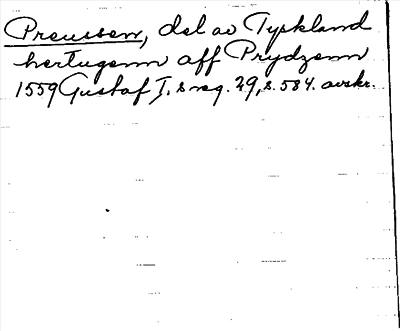 Preussen, del av Tyskland
hertugenn aff Prydzenn
1559 Gustaf I. s reg. 29, s. 584. avskr.